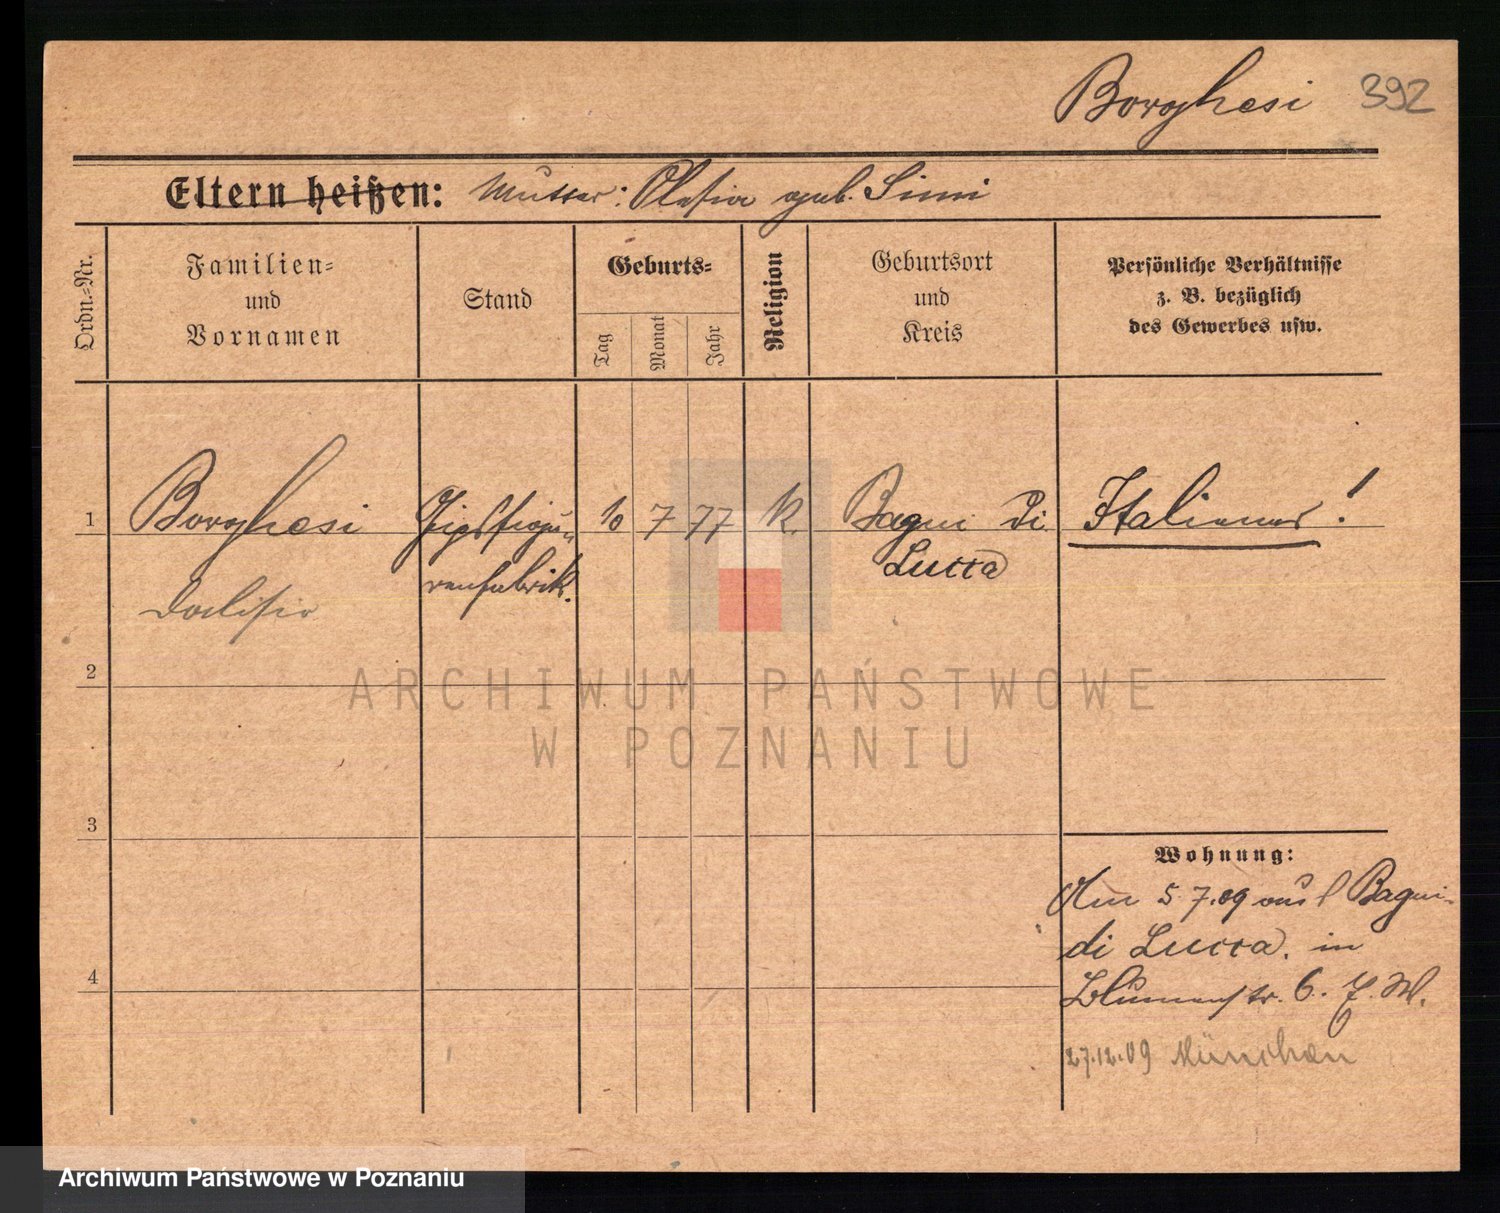 Borghesi 392
Eltern heißen: Mutter: geb. Simi
Ordn.-Nr.
Familien-
und
Vornamen
Stand
Geburts-
Tag
Monat
Jahr
Religion
Geburtsort
und
Kreis
Persönliche Verhältnisse
z. B. bezüglich
des Gewerbes usw.
1 Borghesi Gipsfigu- 10 7 77 K. Bagni di Italiener!
renfabrik. Lucca
2
3
4
Wohnung:
Am 5.7.09 aus Bagni-
di Lucca. in
Blumenstr. 6.
27.12.09 München
ARCHIWUM PAŃSTWOWE
W POZNANIU
Archiwum Państwowe w Poznaniu